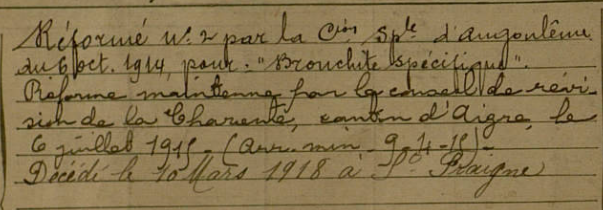 Réformé n° 2 par la Cion Sple d'Angoulême
du 6 oct. 1914, pour : "Bronchite spécifique".
Réforme maintenue par le conseil de révi-
sion de la Charente, canton d'Aigre, le
6 juillet 1915. (arr. min. 9-4-15) -
Décédé le 10 Mars 1918 à St Fraigne